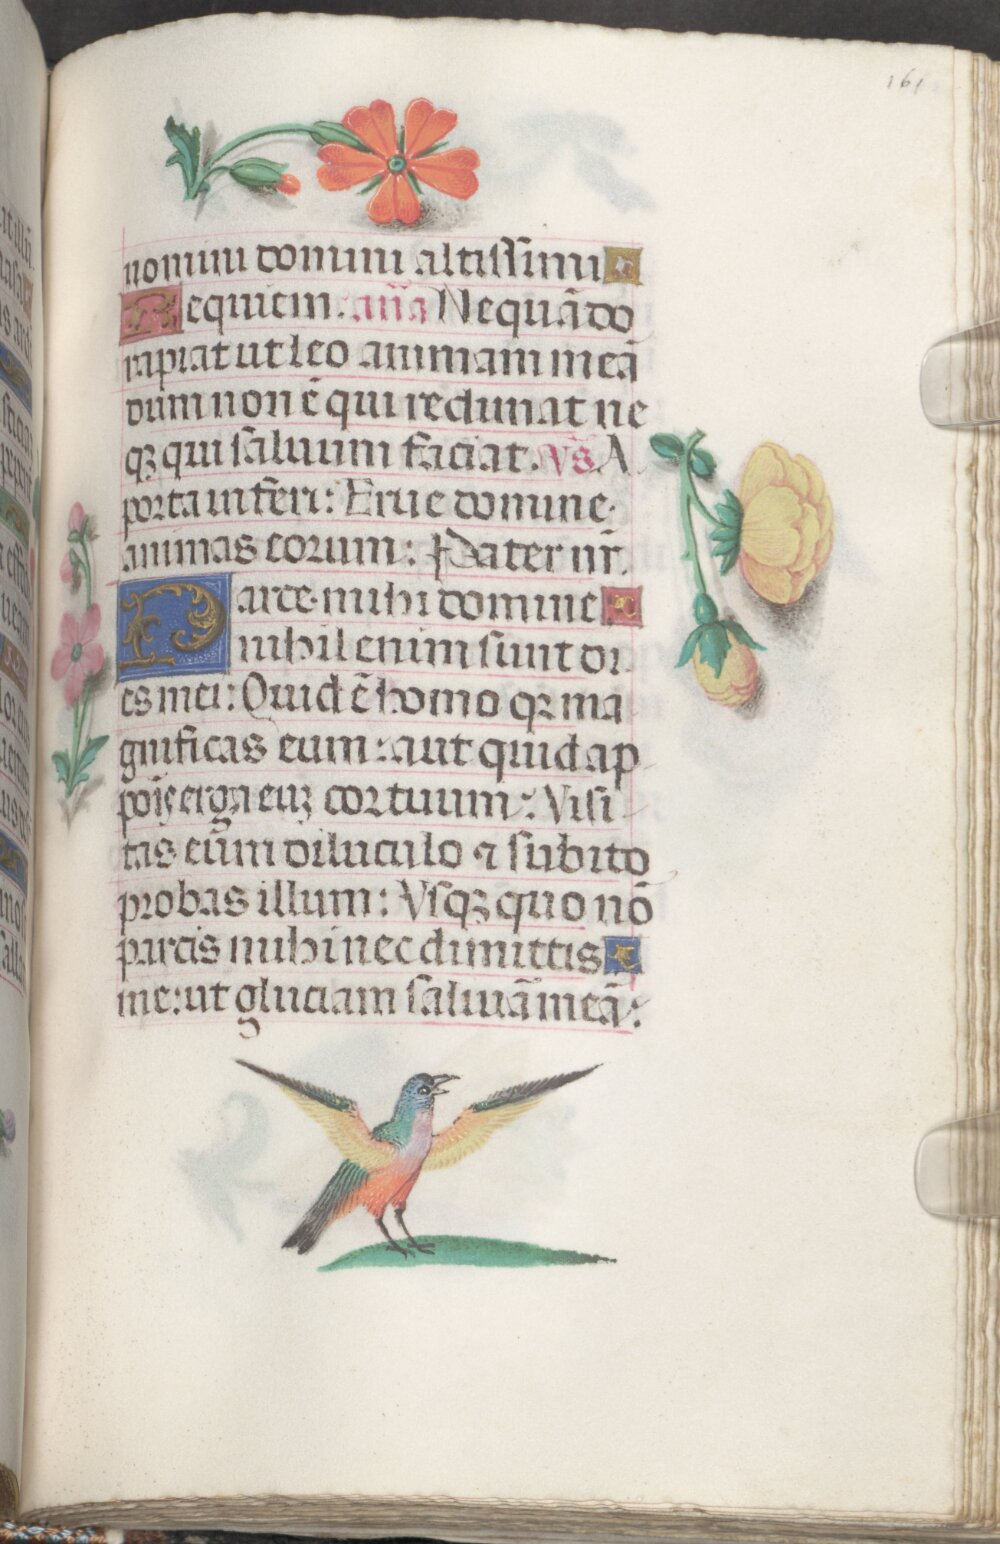 161
nomini domini altissimi
Requiem. añã Nequãdo
rapiat ut leo animam meã
dum non ē qui redimat ne
qꝫ qui saluum faciat. Vs A
porta inferi: Erue domine
animas eorum: Pater nr̄.
Parce mihi domine
nihil enim sunt di
es mei: Quid ē homo qꝛ ma
gnificas eum: aut quid ap
poīs erga euꝫ cor tuum: Visi
tas eum diluculo ⁊ subito
probas illum: Vsqꝫ quo nō
parcis mihi nec dimittis
me: ut gluciam saliuā meā: